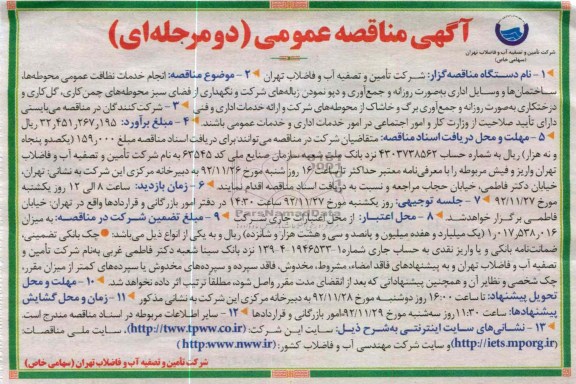 آگهی مناقصه عمومی (دو مرحله‌ای)
شرکت تأمین و تصفیه آب و فاضلاب تهران
(سهامی خاص)
۱- نام دستگاه مناقصه‌گزار: شرکت تأمین و تصفیه آب و فاضلاب تهران ۲- موضوع مناقصه: انجام خدمات نظافت عمومی محوطه‌ها،
ساختمان‌ها و وسایل اداری به‌صورت روزانه و جمع‌آوری و دپو نمودن زباله‌های شرکت و نگهداری از فضای سبز محوطه‌های چمن‌کاری، گل‌کاری و
درختکاری به‌صورت روزانه و جمع‌آوری برگ و خاشاک از محوطه‌های شرکت و ارائه خدمات اداری و فنی ۳- شرکت‌کنندگان در مناقصه می‌بایستی
دارای تأیید صلاحیت از وزارت کار و امور اجتماعی در امور خدمات اداری و خدمات عمومی باشند. ۴- مبلغ برآورد: ۳۲,۴۵۱,۲۶۷,۱۹۵ ریال
۵- مهلت و محل دریافت اسناد مناقصه: متقاضیان شرکت در مناقصه می‌توانند برای دریافت اسناد مناقصه مبلغ ۱۵۹,۰۰۰ (یکصد و پنجاه
و نه هزار) ریال به شماره حساب ۴۳۰۳۷۳۸۵۶۲ نزد بانک ملی شعبه سازمان صنایع ملی کد ۶۳۵۴۵ به نام شرکت تأمین و تصفیه آب و فاضلاب
تهران واریز و فیش مربوطه را با معرفی‌نامه معتبر حداکثر تا ساعت ۱۶ روز شنبه مورخ ۹۲/۱۱/۲۶ به دبیرخانه مرکزی این شرکت به نشانی: تهران،
خیابان دکتر فاطمی، خیابان حجاب مراجعه و نسبت به دریافت اسناد مناقصه اقدام نمایند ۶- زمان بازدید: ساعت ۸ الی ۱۲ روز یکشنبه
مورخ ۹۲/۱۱/۲۷ ۷- جلسه توجیهی: روز یکشنبه مورخ ۹۲/۱۱/۲۷ ساعت ۱۴:۳۰ در دفتر امور بازرگانی و قراردادها واقع در تهران: خیابان
فاطمی برگزار خواهد شد. ۸- محل اعتبار: از محل اعتبارات جاری شرکت ۹- مبلغ تضمین شرکت در مناقصه: به میزان
۱,۰۱۷,۵۳۸,۰۱۶ (یک میلیارد و هفده میلیون و پانصد و سی و هشت هزار و شانزده) ریال و به یکی از انواع ذیل می‌باشد: چک بانکی تضمینی،
ضمانت‌نامه بانکی و یا واریز نقدی به حساب جاری شماره نزد بانک سینا شعبه دکتر فاطمی غربی به‌نام شرکت تأمین و
تصفیه آب و فاضلاب تهران و به پیشنهادهای فاقد امضاء، مشروط، مخدوش، فاقد سپرده و سپرده‌های مخدوش یا سپرده‌های کمتر از میزان مقرر،
چک شخصی و نظایر آن و همچنین پیشنهاداتی که بعد از انقضای مدت مقرر واصل شود، مطلقاً ترتیب اثر داده نخواهد شد. ۱۰- مهلت و محل
تحویل پیشنهاد: تا ساعت ۱۶:۰۰ روز دوشنبه مورخ ۹۲/۱۱/۲۸ به دبیرخانه مرکزی این شرکت به نشانی مذکور ۱۱- زمان و محل گشایش
پیشنهادها: ساعت ۱۱:۳۰ روز سه‌شنبه مورخ ۹۲/۱۱/۲۹ امور بازرگانی و قراردادها ۱۲- سایر اطلاعات مربوطه در اسناد مناقصه مندرج است
۱۳- نشانی‌های سایت اینترنتی به‌شرح ذیل: سایت این شرکت: (http://tww.tpww.co.ir)، سایت ملی مناقصات
(http://iets.mporg.ir) و سایت شرکت مهندسی آب و فاضلاب کشور: (http:www.nww.ir)
شرکت تأمین و تصفیه آب و فاضلاب تهران (سهامی خاص)